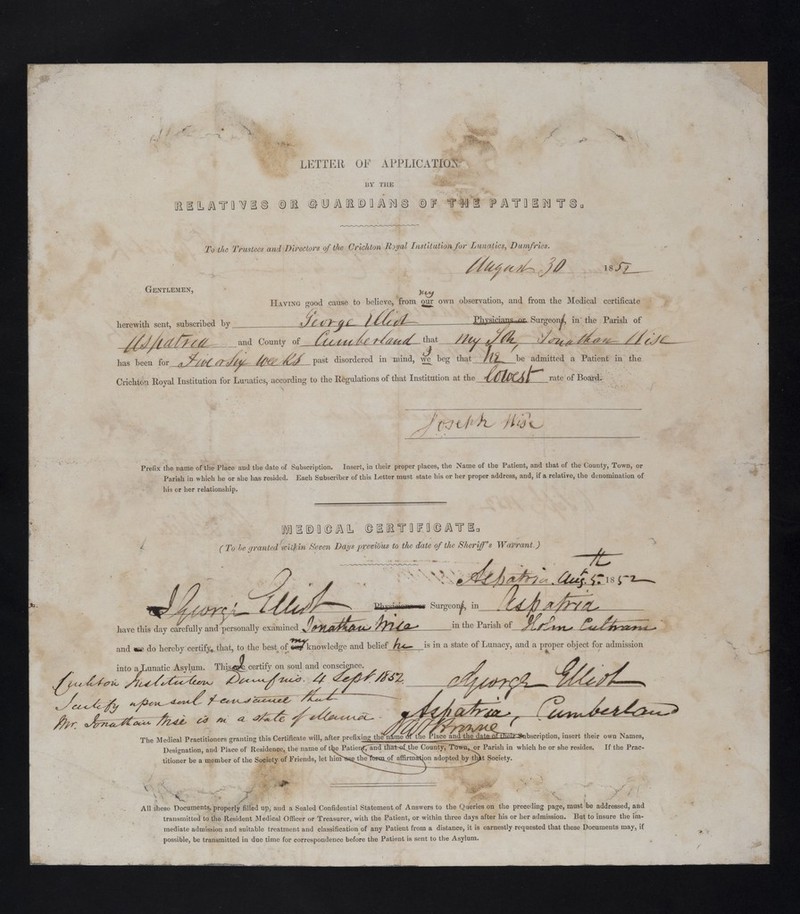 LETTER OF APPLICATION
BY THE
RELATIVES OR GUARDIANS OF THE PATIENTS.
To the Trustees and Directors of the Crichton Royal Institution for Lunatics, Dumfries.
August 30 1852
GENTLEMEN,
my
HAVING good cause to believe, from our own observation, and from the Medical certificate
herewith sent, subscribed by George Elliot Physicians or Surgeons, in the Parish of
Aspatria and County of Cumberland that my Jonathan Wise
has been for Five or Six weeks past disordered in mind, we beg that he be admitted a Patient in the
I
Crichton Royal Institution for Lunatics, according to the Regulations of that Institution at the lowest rate of Board.
Joseph Wise
Prefix the name of the Place and the date of Subscription. Insert, in their proper places, the Name of the Patient, and that of the County, Town, or
Parish in which he or she has resided. Each Subscriber of this Letter must state his or her proper address, and, if a relative, the denomination of
his or her relationship.
MEDICAL CERTIFICATE.
(To be granted within Seven Days previous to the date of the Sheriff's Warrant.)
Aspatria. Augt. 5th 1852
I George Elliot Surgeon, in Aspatria
have this day carefully and personally examined Jonathan Wise in the Parish of Holm Cultram
and do hereby certify, that, to the best of my knowledge and belief he is in a state of Lunacy, and a proper object for admission
into a Lunatic Asylum. This I certify on soul and conscience.
George Elliot
Aspatria, Cumberland
Crichton Institution Dumfries. 4 Sept 1852
I certify upon soul & conscience that
Mr. Jonathan Wise is in a state of Mania.
The Medical Practitioners granting this Certificate will, after prefixing the name of the Place and the date of their Subscription, insert their own Names,
Designation, and Place of Residence, the name of the Patient, and that of the County, Town, or Parish in which he or she resides. If the Prac-
titioner be a member of the Society of Friends, let him use the form of affirmation adopted by that Society.
All these Documents, properly filled up, and a Sealed Confidential Statement of Answers to the Queries on the preceding page, must be addressed, and
transmitted to the Resident Medical Officer or Treasurer, with the Patient, or within three days after his or her admission. But to insure the im-
mediate admission and suitable treatment and classification of any Patient from a distance, it is earnestly requested that these Documents may, if
possible, be transmitted in due time for correspondence before the Patient is sent to the Asylum.